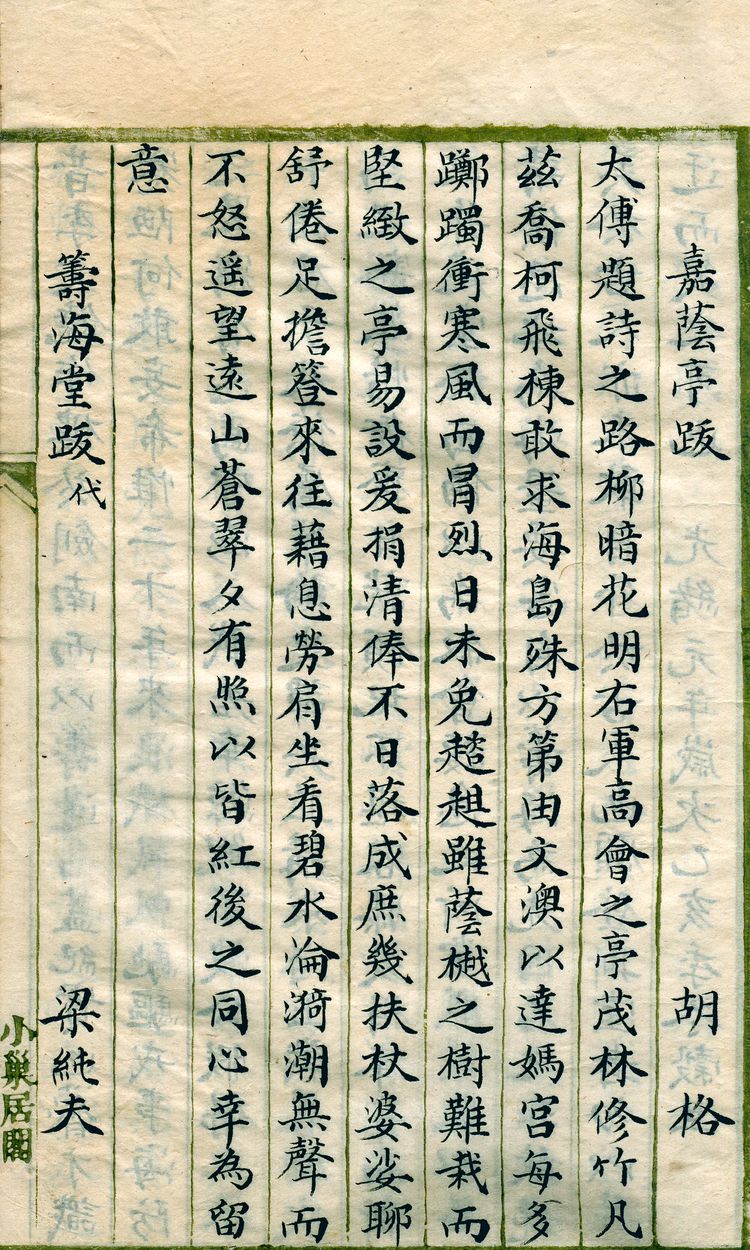 嘉蔭亭跋 胡格
太傅題詩之路柳暗花明右軍高會之亭茂林修竹凡
茲喬柯飛棟敢求海島殊方第由文澳以達媽宮每多
躑躅衝寒風而冐烈日未免趦趄雖蔭樾之樹難栽而
堅緻之亭易設爰捐清俸不日落成庶幾扶杖婆娑聊
舒倦足擔簦來往藉息勞肩坐看碧水淪漪潮無聲而
不怒遥望遠山蒼翠夕有照以皆紅後之同心幸為留
意
籌海堂跋代 梁純夫
小巢居閣